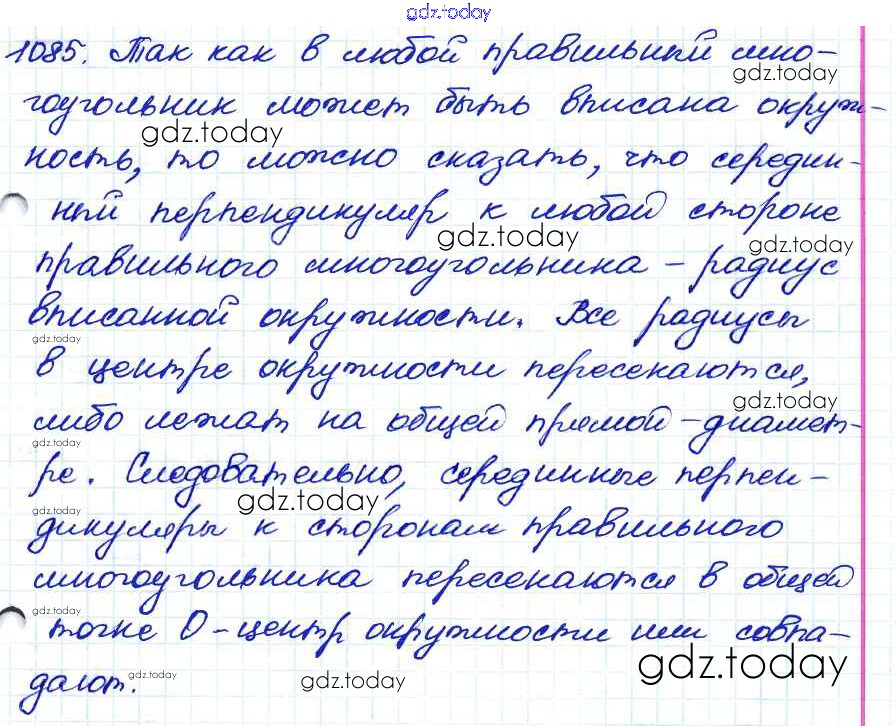 gdz.today
1085. Так как в любой правильный мно-
gdz.today
гоугольник может быть вписана окруж-
gdz.today
ность, то можно сказать, что середин-
ный перпендикуляр к любой стороне
gdz.today
gdz.today
правильного многоугольника - радиус
вписанной окружности. Все радиусы
gdz.today
в центре окружности пересекаются,
gdz.today
либо лежат на общей прямой - диамет-
gdz.today
ре. Следовательно, серединные перпен-
gdz.today
gdz.today
дикуляры к сторонам правильного
многоугольника пересекаются в общей
gdz.today
точке O - центр окружности или совпа-
gdz.today
дают.
gdz.today
gdz.today